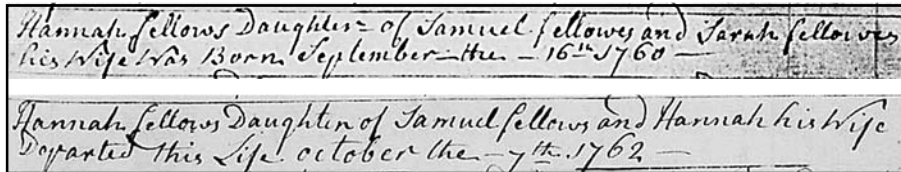 Hannah fellows Daughter of Samuel fellows and Sarah fellows
his Wife Was Born September the - 16th 1760 -
Hannah fellows Daughter of Samuel fellows and Hannah his Wife
Departed this Life october the - 7th 1762 -